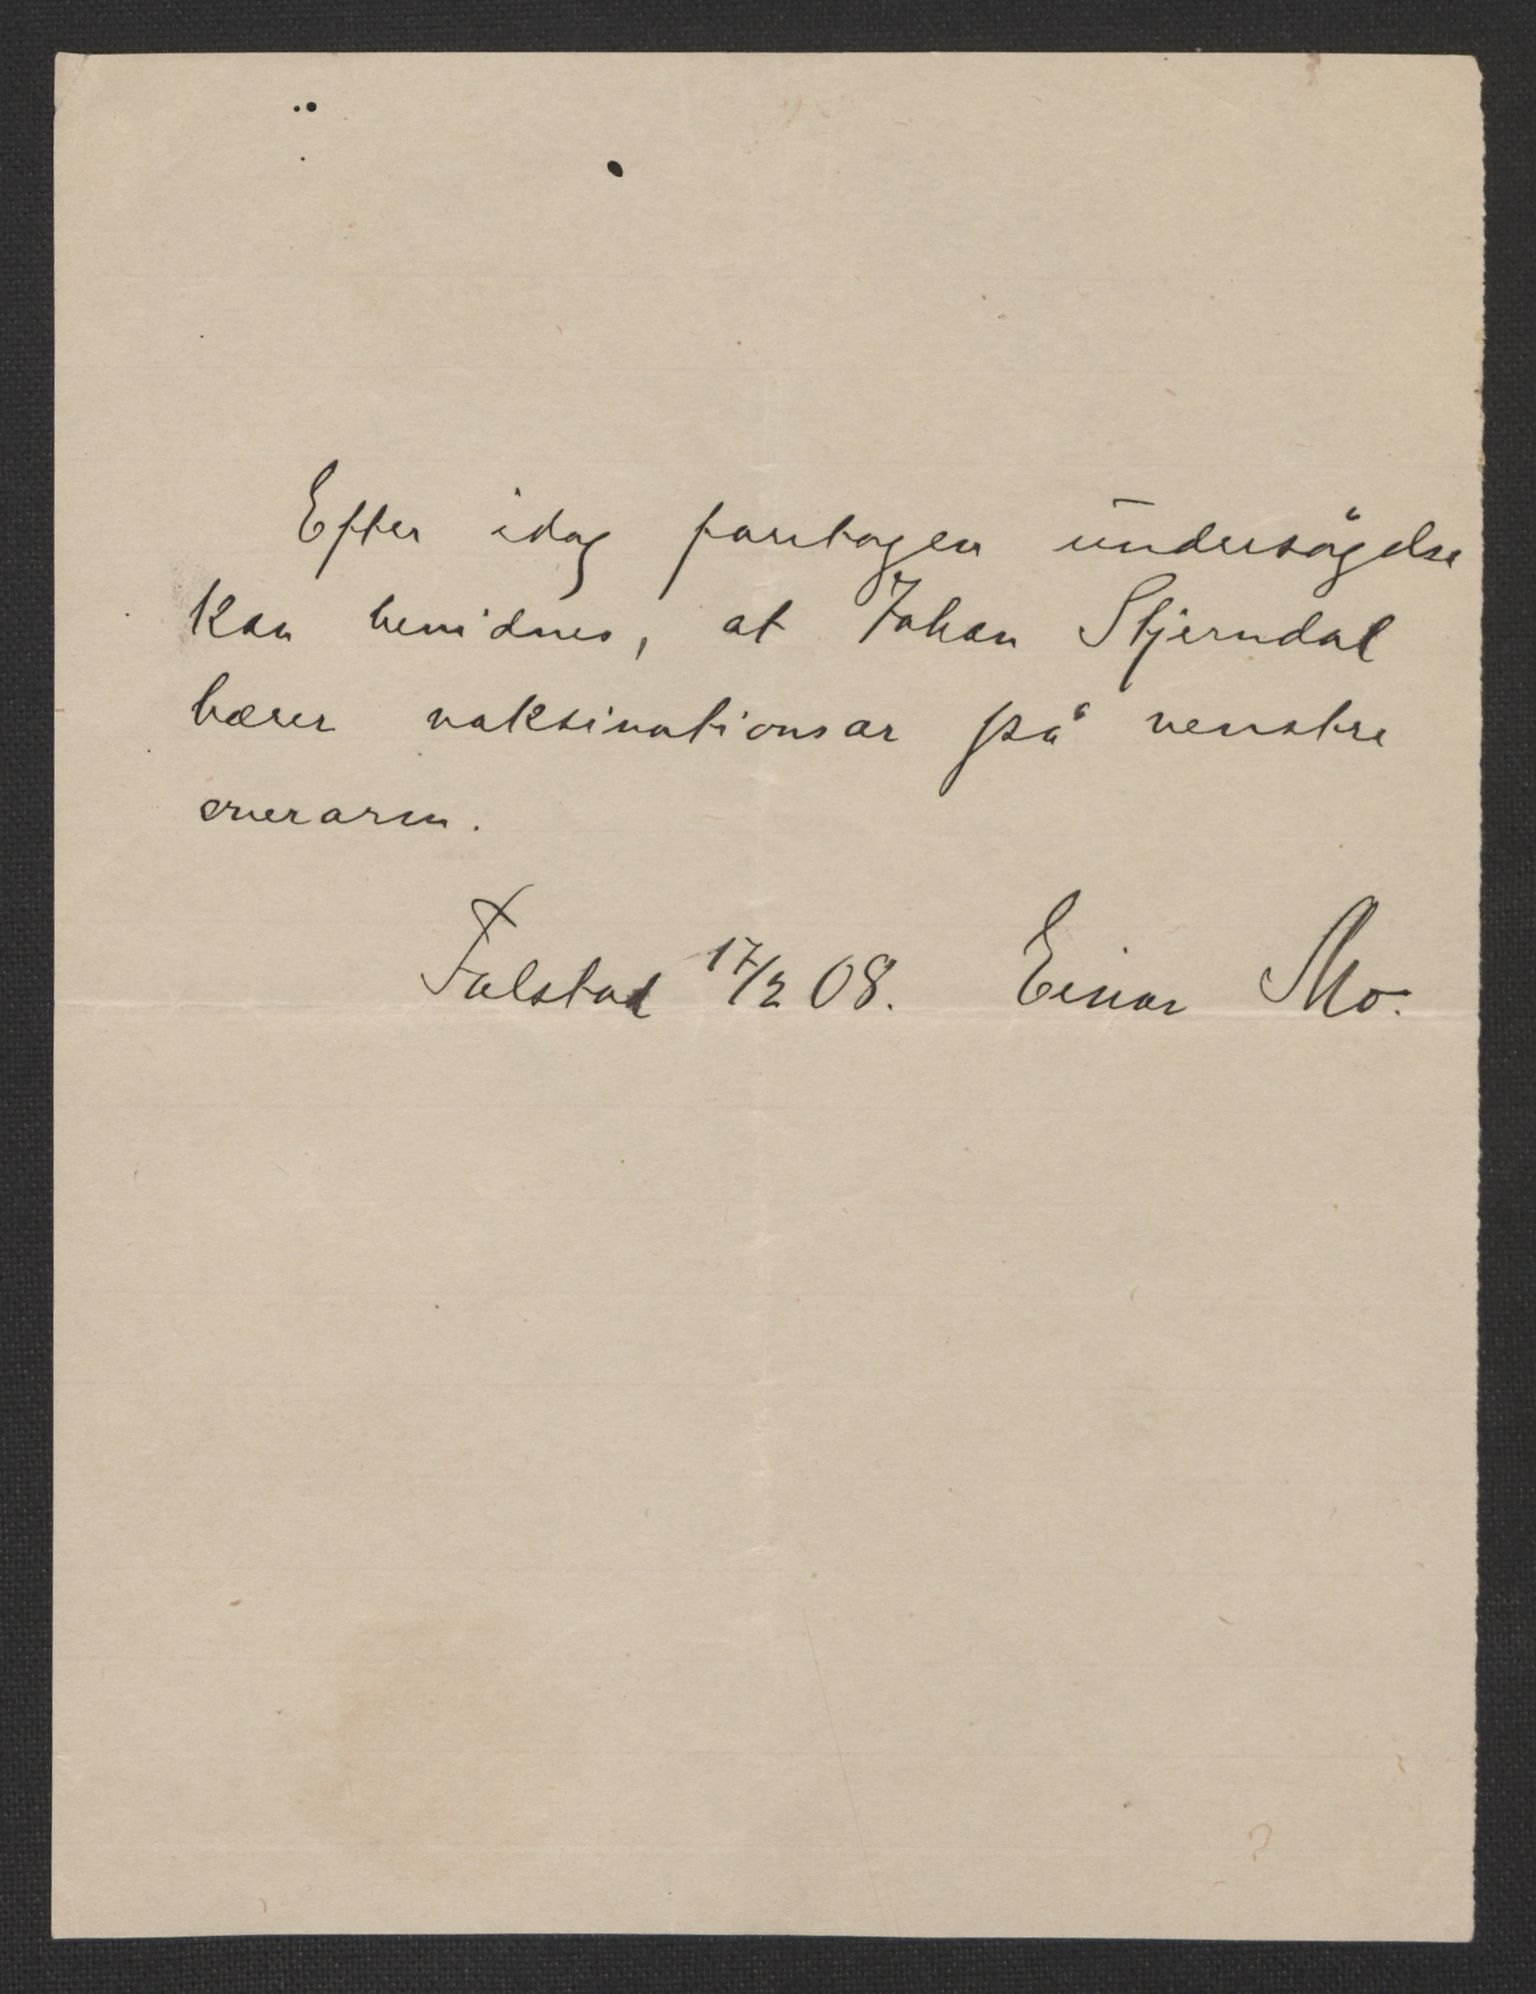 Efter idag foretagen undersøgelse
kan bevidnes, at Johan Stjerndal
bærer vaksinationsar på venstre
overarm.
Falstad 17/2 08. Einar Mo.